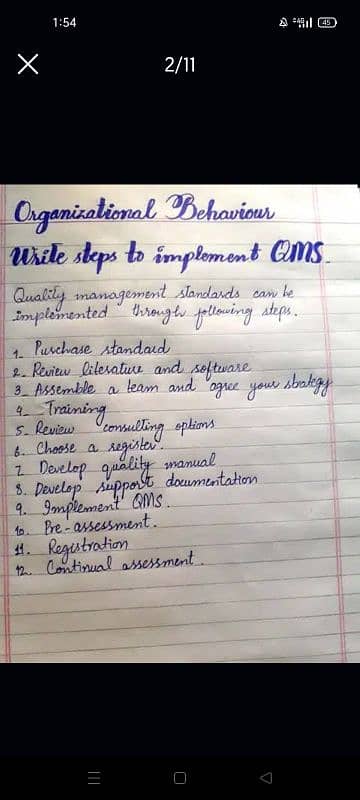 1:54
45
2/11
Organizational Behaviour
Write steps to implement QMS.
Quality management standards can be
implemented through following steps.
1. Purchase standard
2. Review literature and software
3. Assemble a team and agree your strategy
4. Training
5. Review consulting options
6. Choose a register.
7. Develop quality manual
8. Develop support documentation
9. Implement QMS.
10. Pre-assessment.
11. Registration
12. Continual assessment.